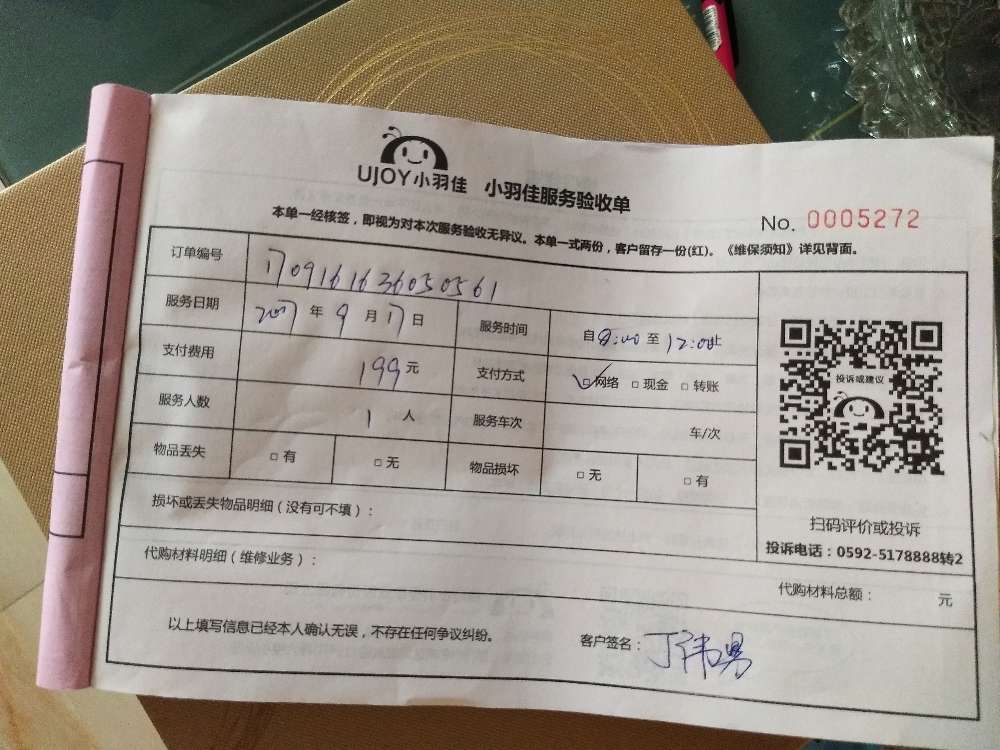 UJOY小羽佳 小羽佳服务验收单
No. 0005272
本单一经核签，即视为对本次服务验收无异议。本单一式两份，客户留存一份(红)。《维保须知》详见背面。
订单编号 1709161636050561
服务日期 2017 年 9 月 17 日 服务时间 自 8:00 至 12:00 止
支付费用 199 元 支付方式 □网络 □现金 □转账
服务人数 1 人 服务车次 车/次
物品丢失 □有 □无 物品损坏 □无 □有
损坏或丢失物品明细（没有可不填）：
投诉或建议
扫码评价或投诉
投诉电话：0592-5178888转2
代购材料明细（维修业务）：
代购材料总额： 元
以上填写信息已经本人确认无误，不存在任何争议纠纷。
客户签名：丁伟勇